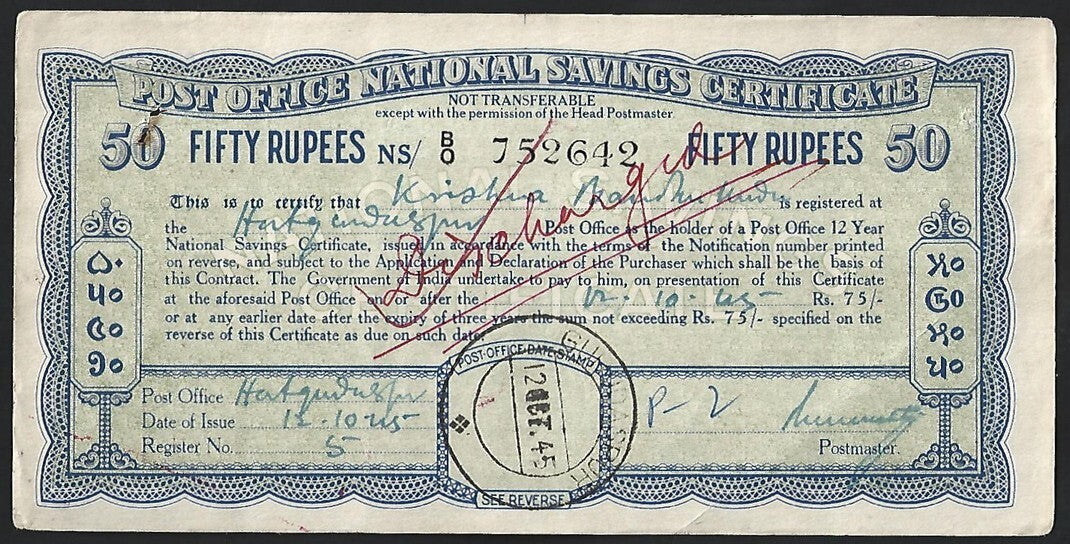 POST OFFICE NATIONAL SAVINGS CERTIFICATE
NOT TRANSFERABLE
except with the permission of the Head Postmaster
50 FIFTY RUPEES NS/ B/O 752642 FIFTY RUPEES 50
This is to certify that Krishna is registered at
the Post Office as the holder of a Post Office 12 Year
National Savings Certificate, issued in accordance with the terms of the Notification number printed
on reverse, and subject to the Application and Declaration of the Purchaser which shall be the basis of
this Contract. The Government of India undertake to pay to him, on presentation of this Certificate
at the aforesaid Post Office on/or after the 12-10-45 Rs. 75/-
or at any earlier date after the expiry of three years the sum not exceeding Rs. 75/- specified on the
reverse of this Certificate as due on such date.
Discharged
५०
৫০
POST OFFICE DATE STAMP
12 OCT. 45
SEE REVERSE
Post Office
Date of Issue 12-10-45
Register No. 5
P-2
Postmaster.